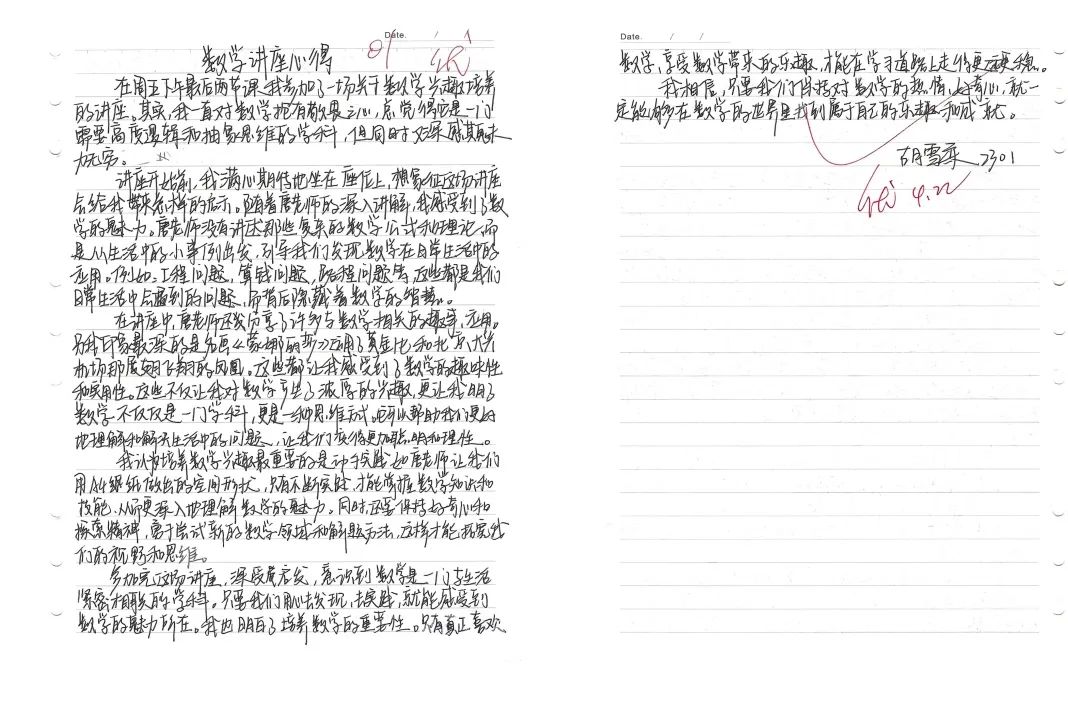 Date.
数学讲座心得
在周五下午最后两节课,我参加了一场关于数学兴趣培养
的讲座。其实,我一直对数学抱有敬畏之心,总觉得它是一门
需要高度逻辑和抽象思维的学科,但同时又深感其魅
力无穷。
讲座开始前,我满心期待地坐在座位上,想象这场讲座
会给我带来怎样的启示。随着唐老师的深入讲解,我感受到了数
学的魅力。唐老师没有讲述那些复杂的数学公式和理论,而
是从生活中的小事例出发,引导我们发现数学在日常生活中的
应用。例如:工程问题,算钱问题,路程问题等,这些都是我们
日常生活中会遇到的问题,而背后隐藏着数学的智慧。
在讲座中,唐老师还分享了许多与数学相关的趣事、应用。
令我印象最深的是名画《蒙娜丽莎》应用了黄金比和北京大兴
机场那展翅飞翔的凤凰。这些都让我感受到了数学的趣味性
和实用性。这些不仅让我对数学产生了浓厚的兴趣,更让我明白了
数学不仅仅是一门学科,更是一种思维方式。它可以帮助我们更好
地理解和解决生活中的问题,让我们变得更加聪明和理性。
我认为培养数学兴趣最重要的是动手实践,如唐老师让我们
用A4纸做出的空间形状,只有不断实践,才能掌握数学知识和
技能,从而更深入地理解数学的魅力。同时,还要保持好奇心和
探索精神,勇于尝试新的数学领域和解题方法,这样才能拓宽我
们的视野和思维。
参加完这场讲座,深受启发,意识到数学是一门与生活
紧密相联的学科。只要我们用心去发现,去实践,就能感受到
数学的魅力所在。我也明白了培养数学的重要性。只有真正喜欢
Date. / /
数学,享受数学带来的乐趣,才能在学习道路上走得更远更稳。
我相信,只要我们保持对数学的热情、好奇心,就一
定能够在数学的世界里找到属于自己的乐趣和成就。
胡雪 2301
4.22